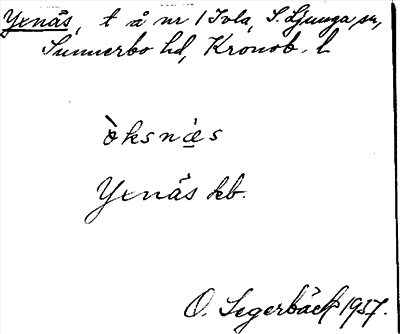 Yxnäs, t å nr 1 Ivla, S. Ljunga sn,
Sunnerbo hd, Kronob. l
òksnæs
Yxnäs kb.
O. Segerbäck 1937.